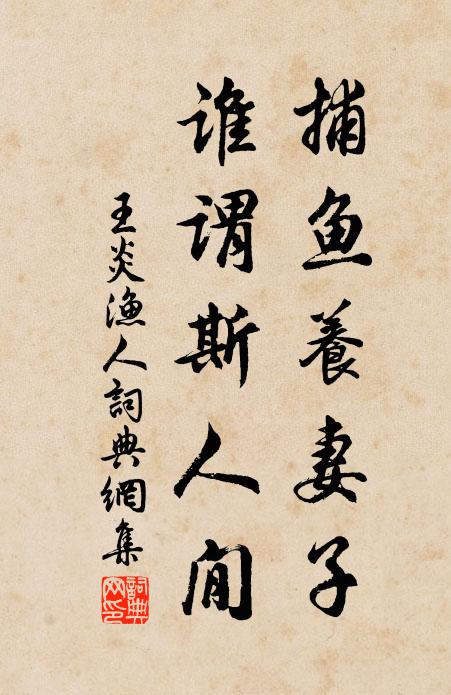 捕鱼養妻子
谁谓斯人闲
王炎漁人詞典網集
詞典
网印